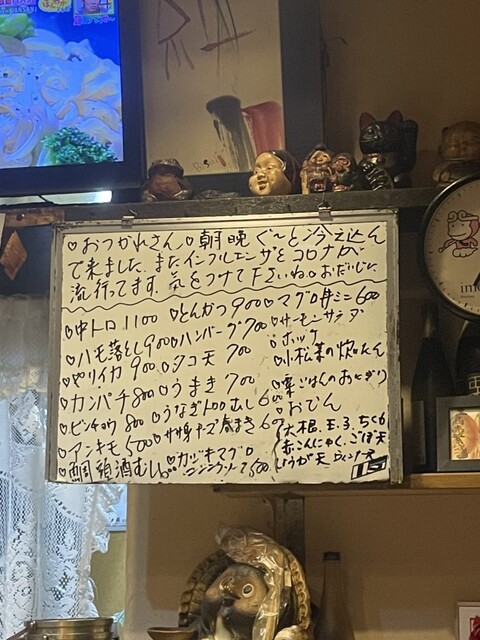 ♡おつかれさん♡朝晩ぐ〜と冷え込ん
で来ました。またインフルエンザとコロナが
流行ってます。気をつけて下さいね。おだいじに
♡中トロ1100 ♡とんかつ900 ♡マグロ丼ミニ600
♡ハモ落とし900 ♡ハンバーグ700 ♡サーモンサラダ
♡やりイカ900 ♡タコ天700 ♡ホッケ
♡カンパチ800 ♡うまき700 ♡小松菜の炊いたん
♡ビンチョウ800 ♡うなぎトロむし6 ♡栗ごはんのおにぎり
♡アンキモ500 ♡ササ身チーズ春まき60 ♡おでん
♡鯛頭酒むし600 ♡カジキマグロ 大根、玉子、ちく6
500 赤こんにゃく、ごぼ天
しょうが天 ウィンナー